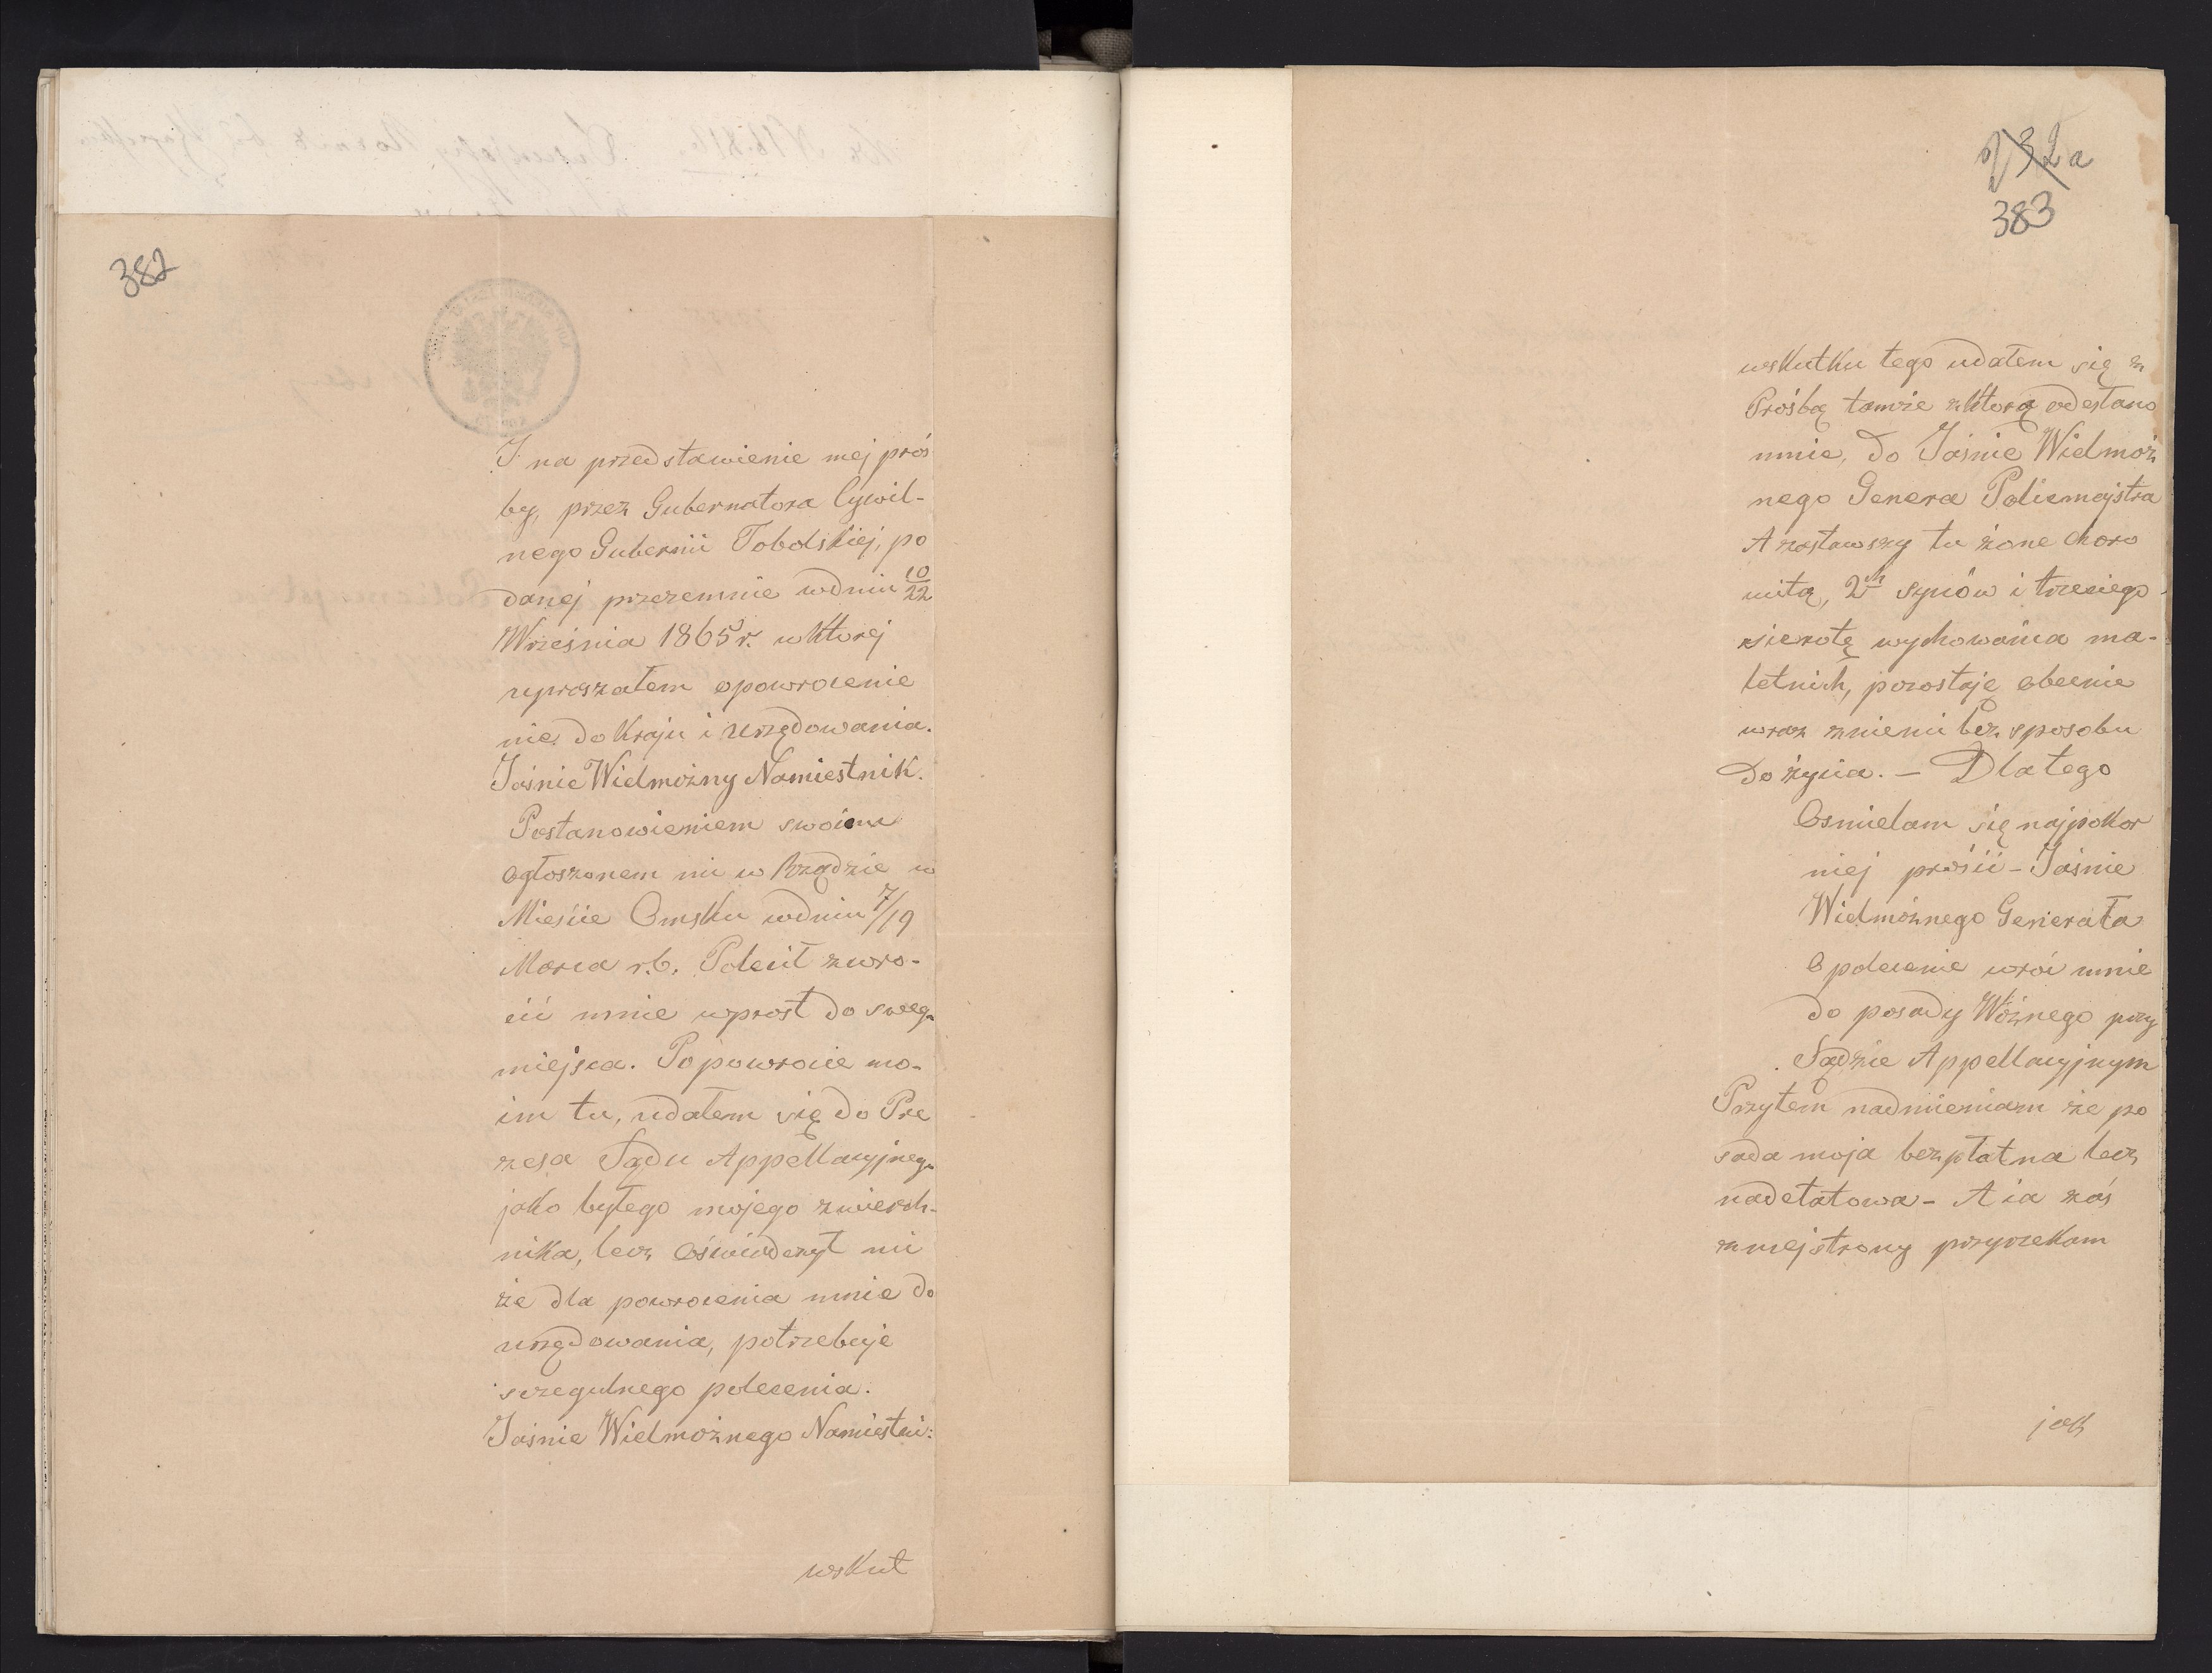 382
I na przedstawienie mej proś
by, przez Gubernatora Cywil-
nego Gubernii Tobolskiej, po
danej przezemnie wdniu 10/22
Września 1865 r. wktorej
upraszałem opowrocenie
mie do Kraju i urzędowania.
Jaśnie Wielmożny Namiestnik.
Postanowieniem swoiem
Ogłoszonem mi w Rządzie w
Mieście Omsku wdniu 7/19
Marca r.b. Polecił zwro-
cić mnie wprost do sweg-
miejsca. Po powrocie mo-
im tu, udałem się do Pre
zesa Sądu Appellacyjneg-
jako byłego mojego zwierch-
nika, lecz Oświadczył mi
że dla powrocenia mnie do
urzędowania, potrzebuje
szczegulnego polecenia.
Jaśnie Wielmożnego Namiestni:
wskut
232a
383
wskutku tego udałem się z
Prośbą tamże zktorą odesłano
mnie, do Jaśnie Wielmoż
nego Genera Policmajstra
A zostawszy tu żone choro
witą, 2ch synów i trzeciego
sierotę wychowańca ma-
letnich, pozostaję obecnie
wraz zniemi bez sposobu
do życia. - Dlatego
Osmielam się najpokor
niej prosić - Jaśnie
Wielmożnego Generała
O polecenie wróc mnie
do posady Wóźnego przy
Sądzie Appellacyjnym
Przytem nadmieniam że po
sada moja bezpłatna lecz
nadetatowa - A ia zaś
zmej strony przyrzekam
jak